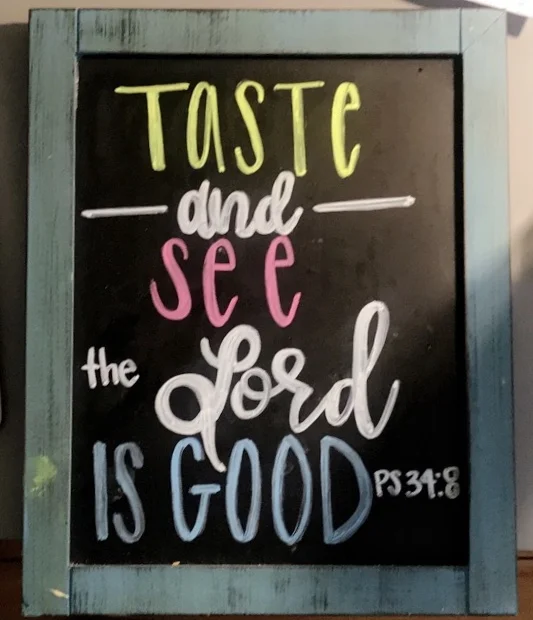 Taste
and
see
the Lord
IS GOOD PS 34:8